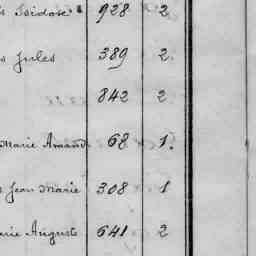 Isidore 928 2
Jules 389 2
842 2
Marie Armand 68 1.
Jean Marie 308 1
Marie Auguste 641 2